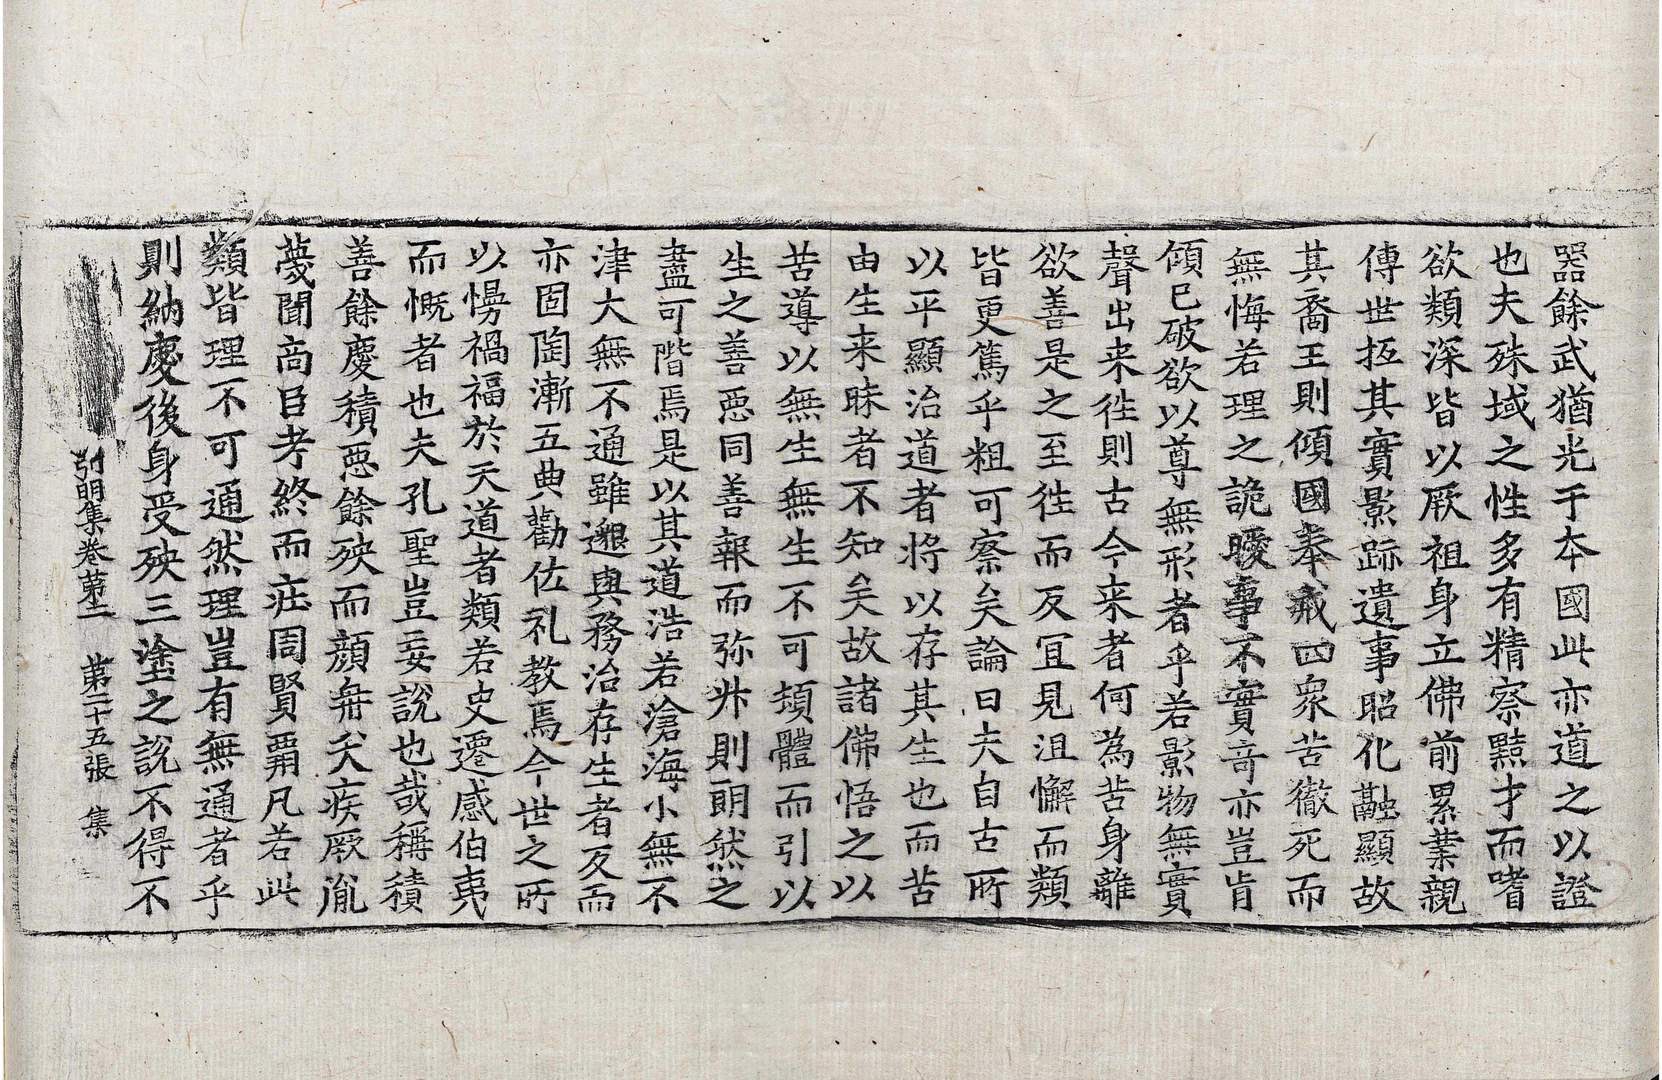 器餘武猶光于夲國此亦道之以證
也夫殊域之性多有精察黠才而嗜
欲類深皆以厥祖身立佛前累葉親
傅世抵其實影跡遺事昭化融顯故
其裔王則傾國奉戒四衆苦徹死而
無悔若理之詭曖事不實竒亦豈肯
傾已破欲以尊無形者乎若影物無實
聲出来徃則古今来者何為苦身離
欲善是之至徃而反冝見沮懈而類
皆更篤乎粗可察矣論曰夫自古所
以平顯治道者将以存其生也而苦
由生来昧者不知矣故諸佛悟之以
苦導以無生無生不可頓體而引以
生之善惡同善報而弥升則朗然之
盡可階焉是以其道浩若滄海小無不
津大無不通雖邈與務治存生者反而
亦固陶漸五典勸佐礼教焉今世之所
以慢禍福於天道者類若史遷感伯夷
而慨者也夫孔聖豈妄說也㢤稱積
善餘慶積惡餘殃而顔冉夭疾厥胤
蔑聞商臣考終而莊周賢霸凡若此
類皆理不可通然理豈有無通者乎
則納慶後身受殃三塗之說不得不
弘明集卷苐二 苐二十五張 集